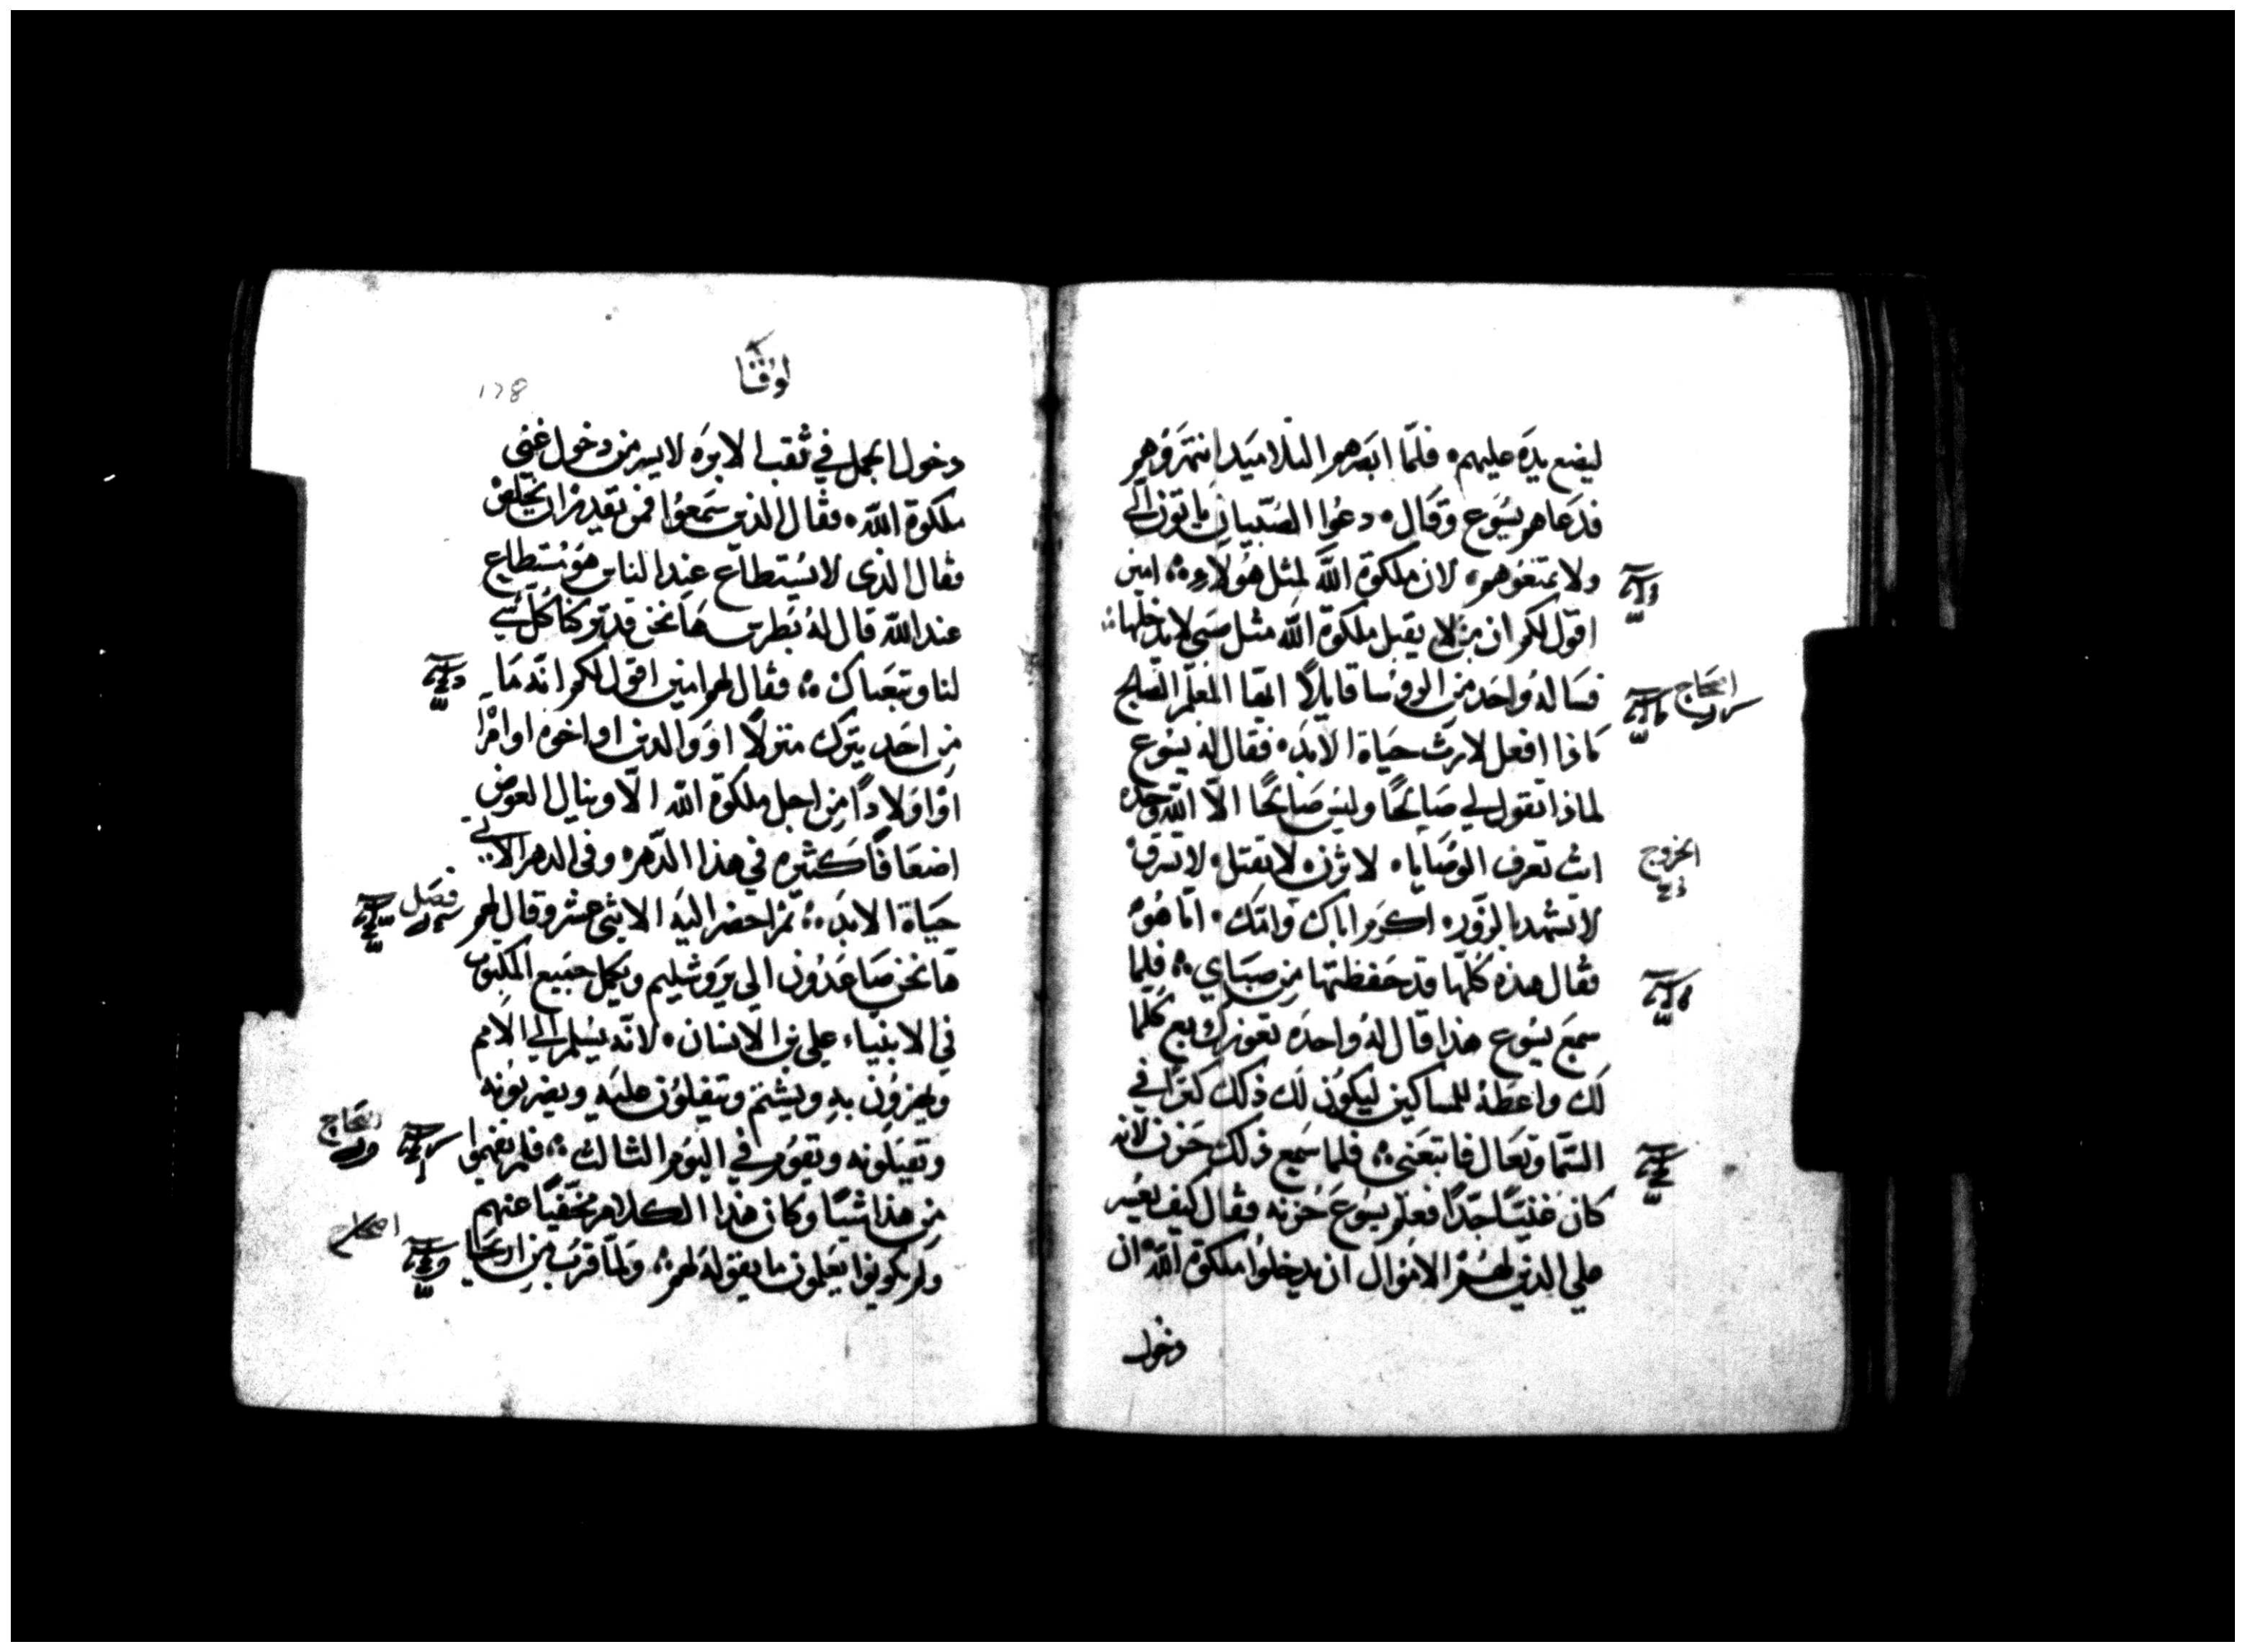 ليضع يده عليهم فلمّا ابصرهم التلاميد انتهروهم
فدعاهم يسوع وقال دعوا الصبيان ياتون الي
ولا تمنعوهم لان ملكوة الله لمثل هولاء امين
اقول لكم ان من لا يقبل ملكوة الله مثل صبي لا يدخلها
فساله واحد من الروسا قايلاً ايها المعلم الصالح
ماذا افعل لارث حياة الابد فقال له يسوع
لماذا تقول لي صالحًا وليس صالحًا الّا الله وحده
انت تعرف الوصايا لا تزن لا تقتل لا تسرق
لا تشهد بالزور اكرم اباك وامّك امّا هو
فقال هذه كلّها قد حفظتها من صباي فلما
سمع يسوع هذا قال له واحده تعوزك بع كلما
لك واعطه للمساكين ليكون لك ذلك كنز في
السّما وتعال فاتبعني فلما سمع ذلك حزن لانه
كان غنيّاً جدّاً فعلم يسوع حزنه فقال كيف يعسر
علي الدين لهم الاموال ان يدخلوا ملكوة الله ان
دخول
اصحاح
الخروج
لوقا
128
دخول الجمل في ثقب الابره لايسر من دخول غني
ملكوة الله فقال الدين سمعوا فمن يقدر ان يخلص
فقال الدي لا يستطاع عند الناس هو مستطاع
عند الله قال له بطرس ها نحن قد تركنا كل شي
لنا وتبعناك فقال لهم امين اقول لكم انّه ما
من احد يترك منزلاً او والدين او اخوه او امراة
او اولاداً من اجل ملكوة الله الّا وينال العوض
اضعافًا كثيره في هذا الدّهر وفي الدهر الاتي
حياة الابد ثم احضر اليه الاثني عشر وقال لهم
ها نحن صاعدون الي يروشليم ويكمل جميع المكتوب
في الانبياء علي بن الانسان لانّه يسلم الي الامم
ويهزون به ويشتم ويتفلون عليه ويضربونه
ويقتلونه ويقوم في اليوم الثالث فلم يفهموا
من هذا شيئًا وكان هذا الكلام مخفيًا عنهم
ولم يكونوا يعلمون ما يقوله لهم ولمّا قرب من اريحا
فصل
اصحاح
اصحاح